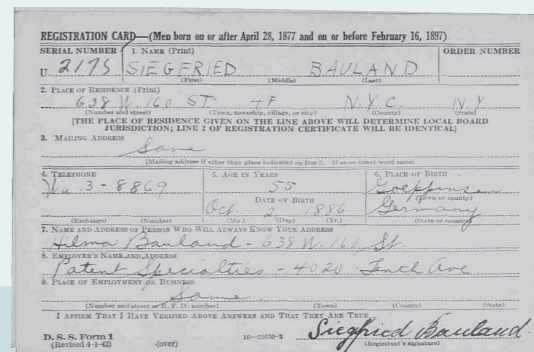 REGISTRATION CARD—(Men born on or after April 28, 1877 and on or before February 16, 1897)
SERIAL NUMBER 1. NAME (Print) ORDER NUMBER
U 2175 SIEGFRIED BAULAND
(First) (Middle) (Last)
2. PLACE OF RESIDENCE (Print)
638 W. 160 ST. 4F N.Y.C. N.Y
(Number and street) (Town, township, village, or city) (County) (State)
[THE PLACE OF RESIDENCE GIVEN ON THE LINE ABOVE WILL DETERMINE LOCAL BOARD
JURISDICTION; LINE 2 OF REGISTRATION CERTIFICATE WILL BE IDENTICAL]
3. MAILING ADDRESS
Same
(Mailing address if other than place indicated on line 2. If same insert word same)
4. TELEPHONE 5. AGE IN YEARS 6. PLACE OF BIRTH
Wa. 3-8869 55 Goeppingen
DATE OF BIRTH (Town or county)
Oct. 2 1886 Germany
(Exchange) (Number) (Mo.) (Day) (Yr.) (State or country)
7. NAME AND ADDRESS OF PERSON WHO WILL ALWAYS KNOW YOUR ADDRESS
Hilma Bauland - 638 W. 160 St.
8. EMPLOYER'S NAME AND ADDRESS
Patent Specialties - 4020 - Ave
9. PLACE OF EMPLOYMENT OR BUSINESS
Same
(Number and street or R. F. D. number) (Town) (County) (State)
I AFFIRM THAT I HAVE VERIFIED ABOVE ANSWERS AND THAT THEY ARE TRUE.
D. S. S. Form 1 Siegfried Bauland
(Revised 4-1-42) (over) 16-21630-2 (Registrant's signature)